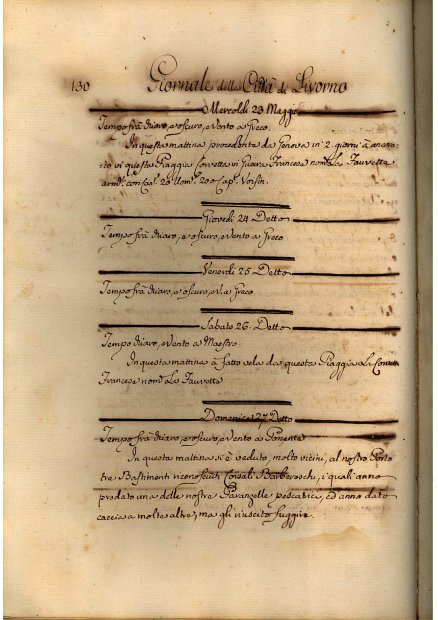 130 Giornale della Città di Livorno
Mercoldì 23. Maggio
Tempo frà chiaro, e oscuro, e Vento a Greco.
In questa mattina procedente da Genova in 2. giorni à ancora-
to in questa Piaggia Corvetta in Guera Francese nomta La Fauvetta
armta. con Cani. 20 Uomi. 200 Capn. Voisin.
Giovedì 24 Detto
Tempo frà chiaro, e oscuro, e Vento a Greco
Venerdì 25 Detto
Tempo frà chiaro, e oscuro, e V. a Greco
Sabato 26. Detto
Tempo chiaro, e Vento a Maestro.
In questa mattina à fatto vela da questa Piaggia La Corvetta
Francese nomta. La Fauvetta
Domenica 27 Detto
Tempo frà chiaro, e oscuro, e Vento a Ponente
In questa mattina si è veduto, molto vicini, al nostro Porto
tre Bastimenti riconosciuti Corsali Barbereschi, i quali anno
predato una delle nostre Paranzelle pescatrici, ed anno dato
caccia a molte altre, ma gli è riuscito fuggire.